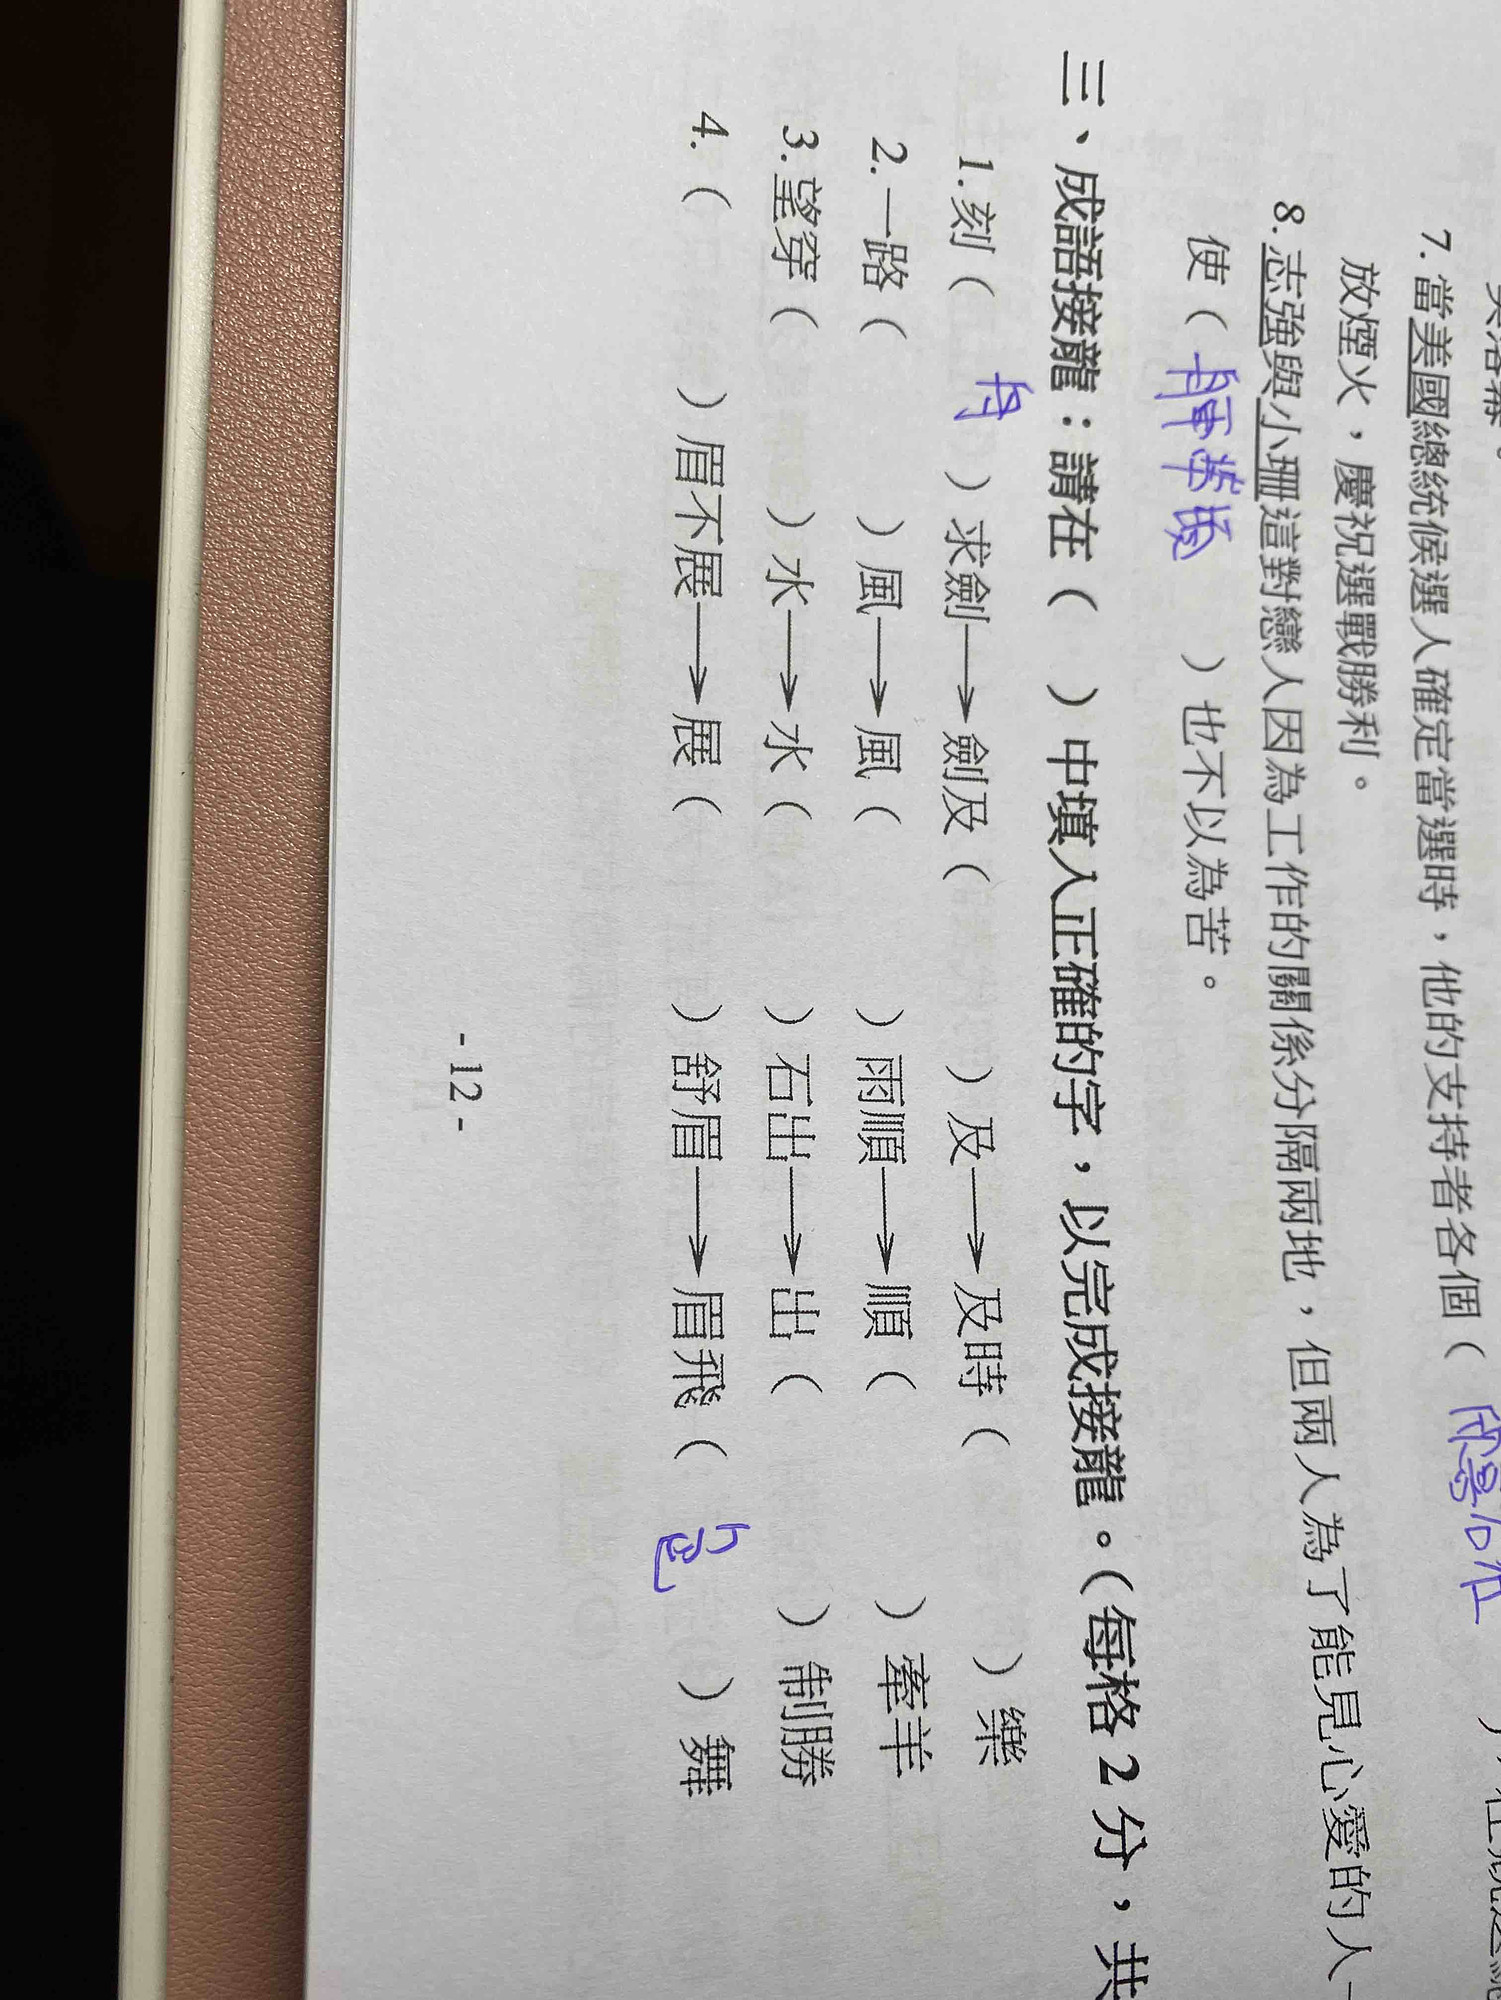 7.當美國總統候選人確定當選時，他的支持者各個（
放煙火，慶祝選戰勝利。
8.志強與小珊這對戀人因為工作的關係分隔兩地，但兩人為了能見心愛的人一
使（ ）也不以為苦。
三、成語接龍：請在（ ）中填入正確的字，以完成接龍。（每格2分，共
1.刻（ 舟 ）求劍→劍及（ ）及→及時（ ）樂
2.一路（ ）風→風（ ）雨順→順（ ）牽羊
3.望穿（ ）水→水（ ）石出→出（ ）制勝
4.（ ）眉不展→展（ ）舒眉→眉飛（ 色 ）舞
- 12 -